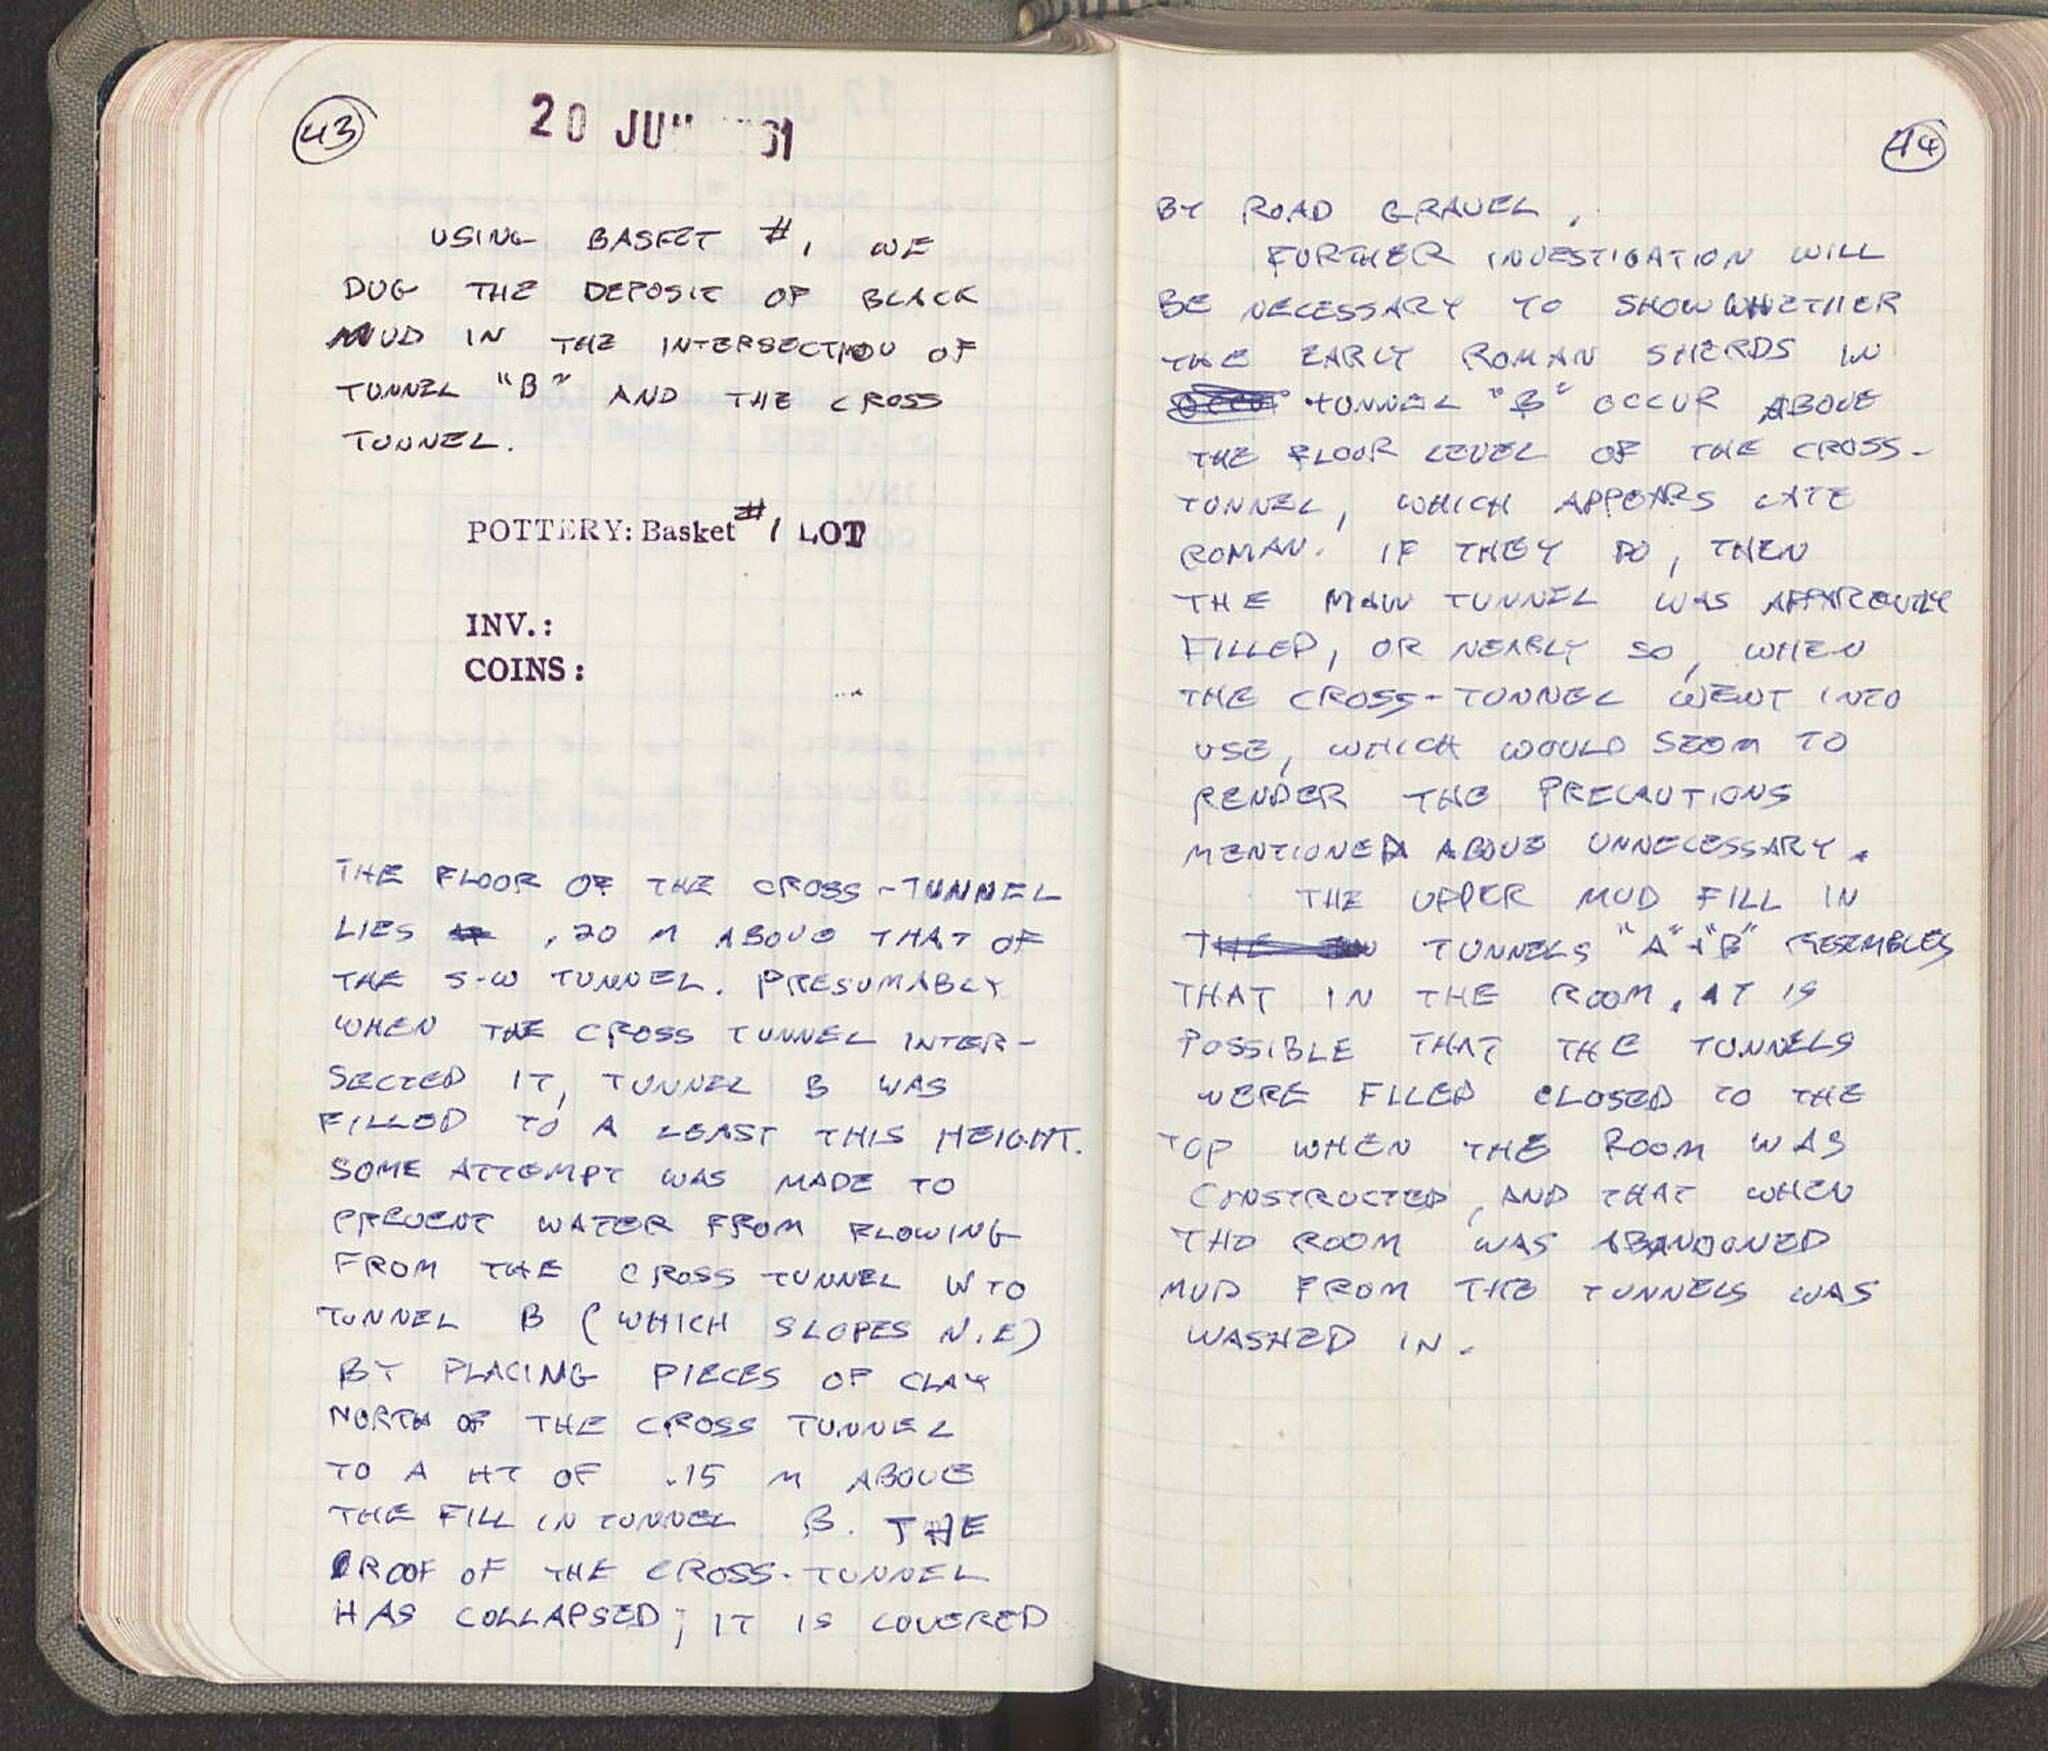 43
20 JUN 61
USING BASKET #1 WE
DUG THE DEPOSIT OF BLACK
MUD IN THE INTERSECTION OF
TUNNEL "B" AND THE CROSS
TUNNEL.
POTTERY: Basket #1 LOT
INV.:
COINS:
THE FLOOR OF THE CROSS-TUNNEL
LIES .20 M ABOVE THAT OF
THE S-W TUNNEL. PRESUMABLY
WHEN THE CROSS TUNNEL INTER-
SECTED IT, TUNNEL B WAS
FILLED TO A LEAST THIS HEIGHT.
SOME ATTEMPT WAS MADE TO
PREVENT WATER FROM FLOWING
FROM THE CROSS TUNNEL INTO
TUNNEL B (WHICH SLOPES N.E)
BY PLACING PIECES OF CLAY
NORTH OF THE CROSS TUNNEL
TO A HT OF .15 M ABOVE
THE FILL IN TUNNEL B. THE
ROOF OF THE CROSS-TUNNEL
HAS COLLAPSED; IT IS COVERED
44
BY ROAD GRAVEL.
FURTHER INVESTIGATION WILL
BE NECESSARY TO SHOW WHETHER
THE EARLY ROMAN SHERDS IN
OCCUR TUNNEL "B" OCCUR ABOVE
THE FLOOR LEVEL OF THE CROSS-
TUNNEL, WHICH APPEARS LATE
ROMAN. IF THEY DO, THEN
THE MAIN TUNNEL WAS APPARENTLY
FILLED, OR NEARLY SO, WHEN
THE CROSS-TUNNEL WENT INTO
USE, WHICH WOULD SEEM TO
RENDER THE PRECAUTIONS
MENTIONED ABOVE UNNECESSARY.
THE UPPER MUD FILL IN
THE TUNNELS "A" + "B" RESEMBLES
THAT IN THE ROOM. IT IS
POSSIBLE THAT THE TUNNELS
WERE FILLED CLOSED TO THE
TOP WHEN THE ROOM WAS
CONSTRUCTED, AND THAT WHEN
THE ROOM WAS ABANDONED
MUD FROM THE TUNNELS WAS
WASHED IN.